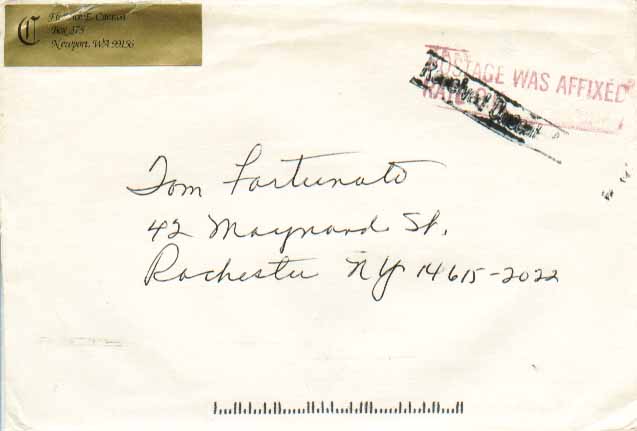 C
E. Curran
Box 375
Newport, WA 99156
POSTAGE WAS AFFIXED
Tom Fortunato
42 Maynard St.
Rochester NY 14615-2022